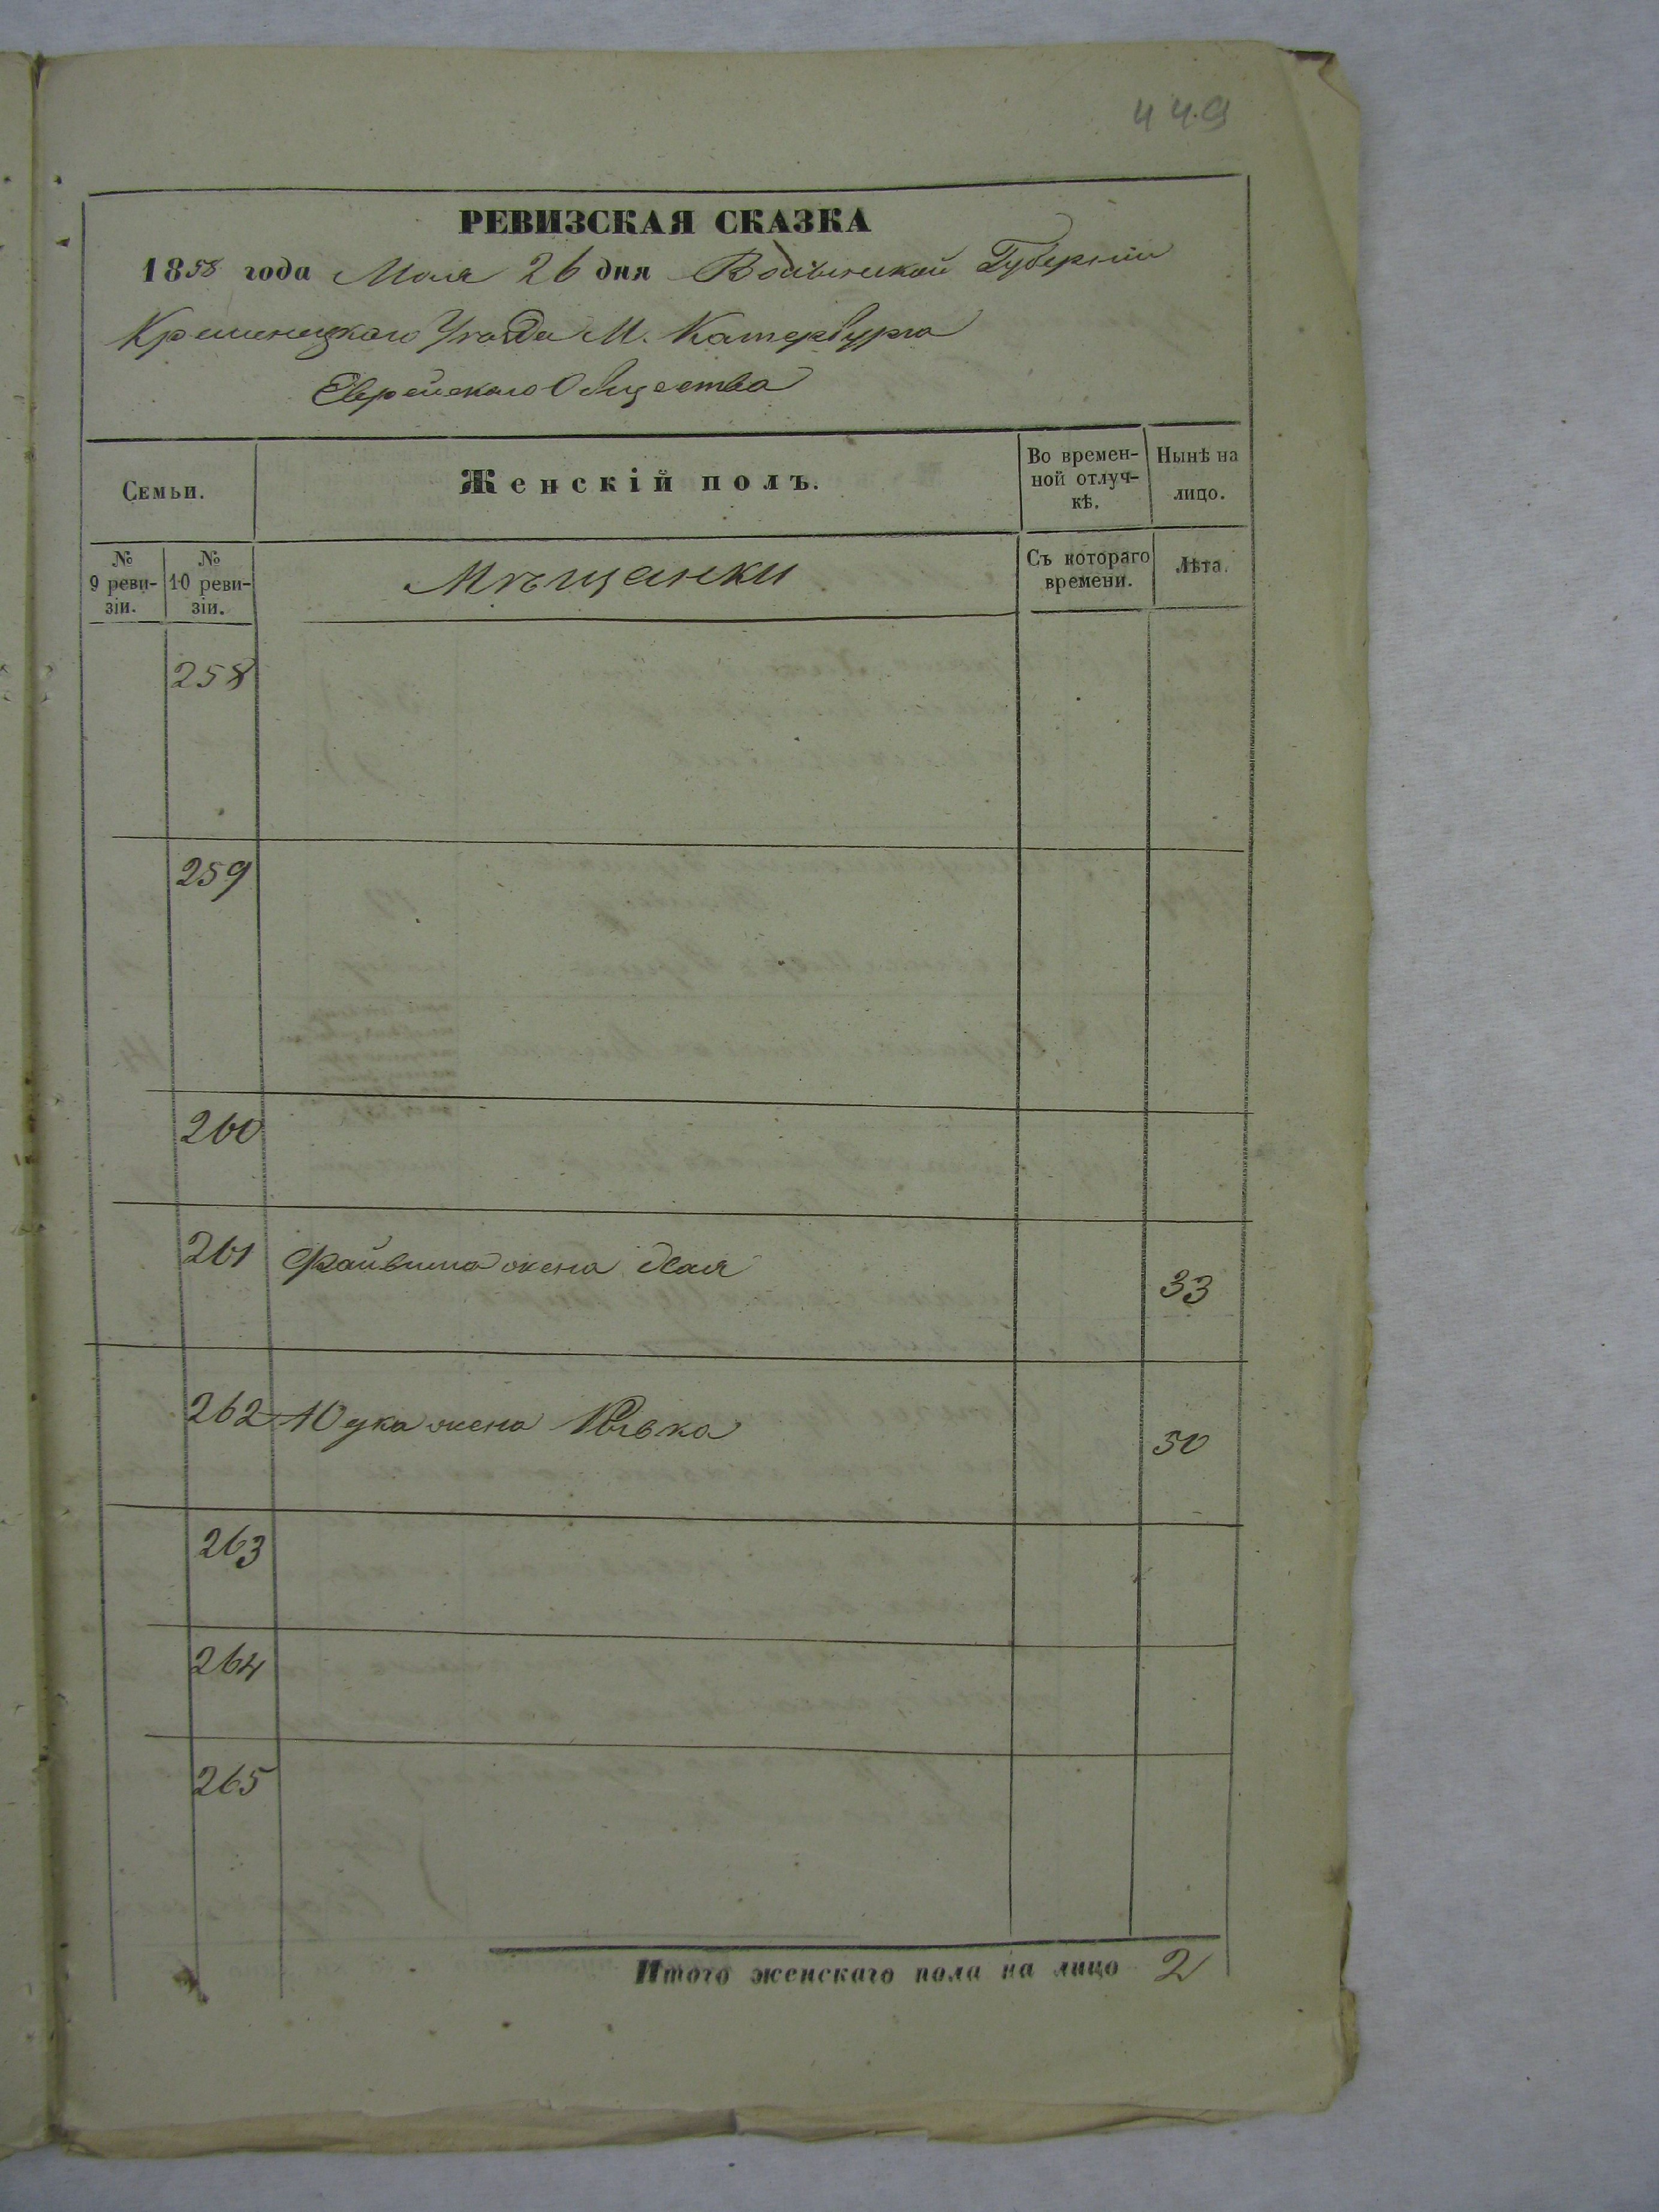 449
РЕВИЗСКАЯ СКАЗКА
1858 года Мая 26 дня Волынской Губерніи
Кременецкаго Уѣзда М. Катербурга
Еврейскаго Общества
Семьи.
Женскій полъ.
Во времен-
ной отлуч-
кѣ.
Нынѣ на
лицо.
№
9 реви-
зіи.
№
10 реви-
зіи.
Мѣщанки
Съ котораго
времени.
Лѣта.
258
259
260
261 Файвиша жена Хая 33
262 Юдка жена Ривка 50
263
264
265
Итого женскаго пола на лицо 2